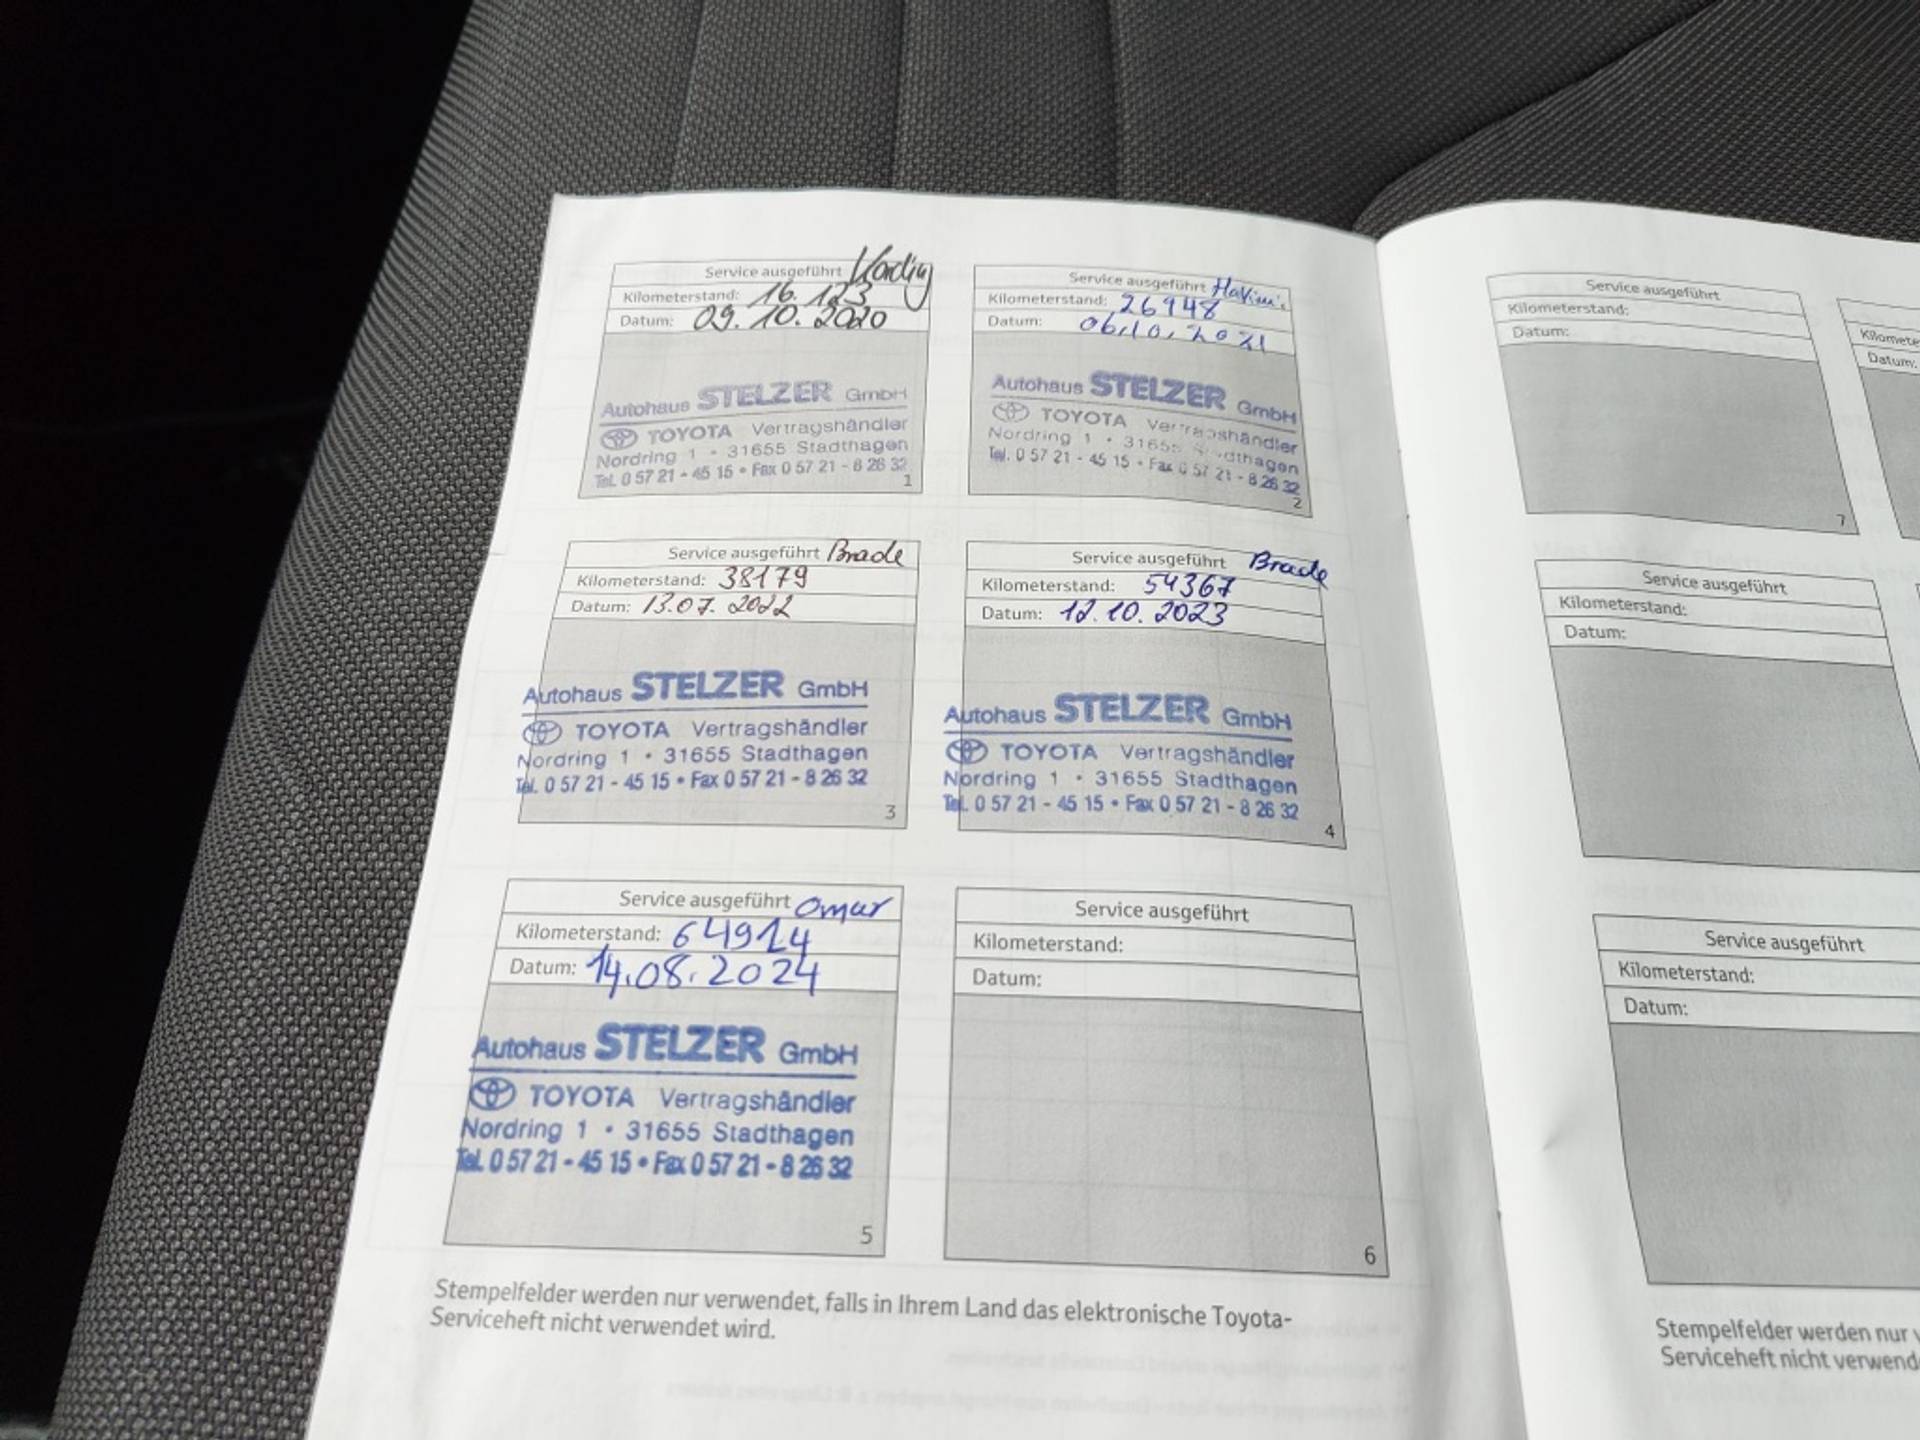 Service ausgeführt
Kilometerstand: 16.123
Datum: 09.10.2020
Autohaus STELZER GmbH
TOYOTA Vertragshändler
Nordring 1 • 31655 Stadthagen
Tel. 0 57 21 - 45 15 • Fax 0 57 21 - 8 26 32
1
Service ausgeführt
Kilometerstand: 26948
Datum: 06.10.2021
Autohaus STELZER GmbH
TOYOTA Vertragshändler
Nordring 1 • 31655 Stadthagen
Tel. 0 57 21 - 45 15 • Fax 0 57 21 - 8 26 32
2
Service ausgeführt Brade
Kilometerstand: 38179
Datum: 13.07.2022
Autohaus STELZER GmbH
TOYOTA Vertragshändler
Nordring 1 • 31655 Stadthagen
Tel. 0 57 21 - 45 15 • Fax 0 57 21 - 8 26 32
3
Service ausgeführt Brade
Kilometerstand: 54367
Datum: 12.10.2023
Autohaus STELZER GmbH
TOYOTA Vertragshändler
Nordring 1 • 31655 Stadthagen
Tel. 0 57 21 - 45 15 • Fax 0 57 21 - 8 26 32
4
Service ausgeführt Omar
Kilometerstand: 64914
Datum: 14.08.2024
Autohaus STELZER GmbH
TOYOTA Vertragshändler
Nordring 1 • 31655 Stadthagen
Tel. 0 57 21 - 45 15 • Fax 0 57 21 - 8 26 32
5
Service ausgeführt
Kilometerstand:
Datum:
6
Stempelfelder werden nur verwendet, falls in Ihrem Land das elektronische Toyota-
Serviceheft nicht verwendet wird.
Service ausgeführt
Kilometerstand:
Datum:
7
Kilomete
Datum:
Service ausgeführt
Kilometerstand:
Datum:
Service ausgeführt
Kilometerstand:
Datum:
Stempelfelder werden nur
Serviceheft nicht verwend